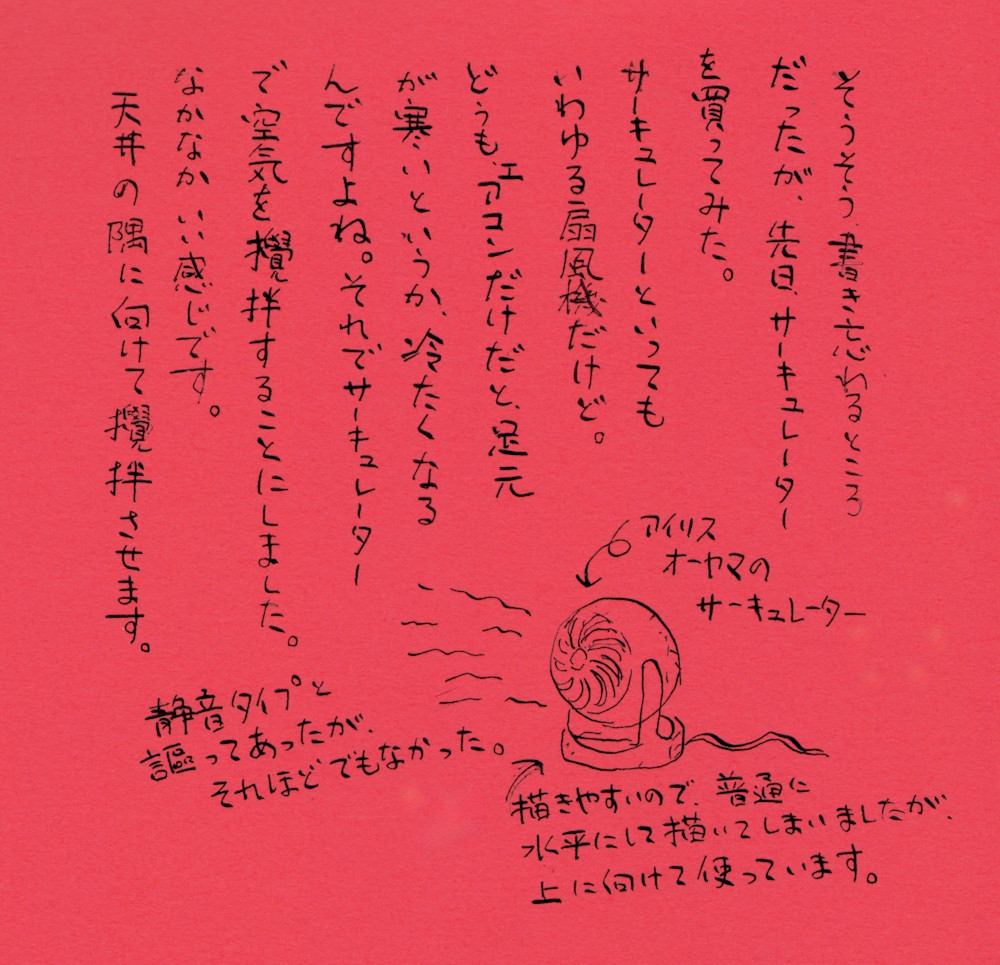 そうそう、書き忘れるところ
だったが、先日、サーキュレーター
を買ってみた。
サーキュレーターといっても
いわゆる扇風機だけど。
どうも、エアコンだけだと、足元
が寒いというか、冷たくなる
んですよね。それでサーキュレーター
で空気を攪拌することにしました。
なかなかいい感じです。
天井の隅に向けて攪拌させます。
アイリス
オーヤマの
サーキュレーター
静音タイプと
謳ってあったが、
それほどでもなかった。
描きやすいので、普通に
水平にして描いてしまいましたが、
上に向けて使っています。